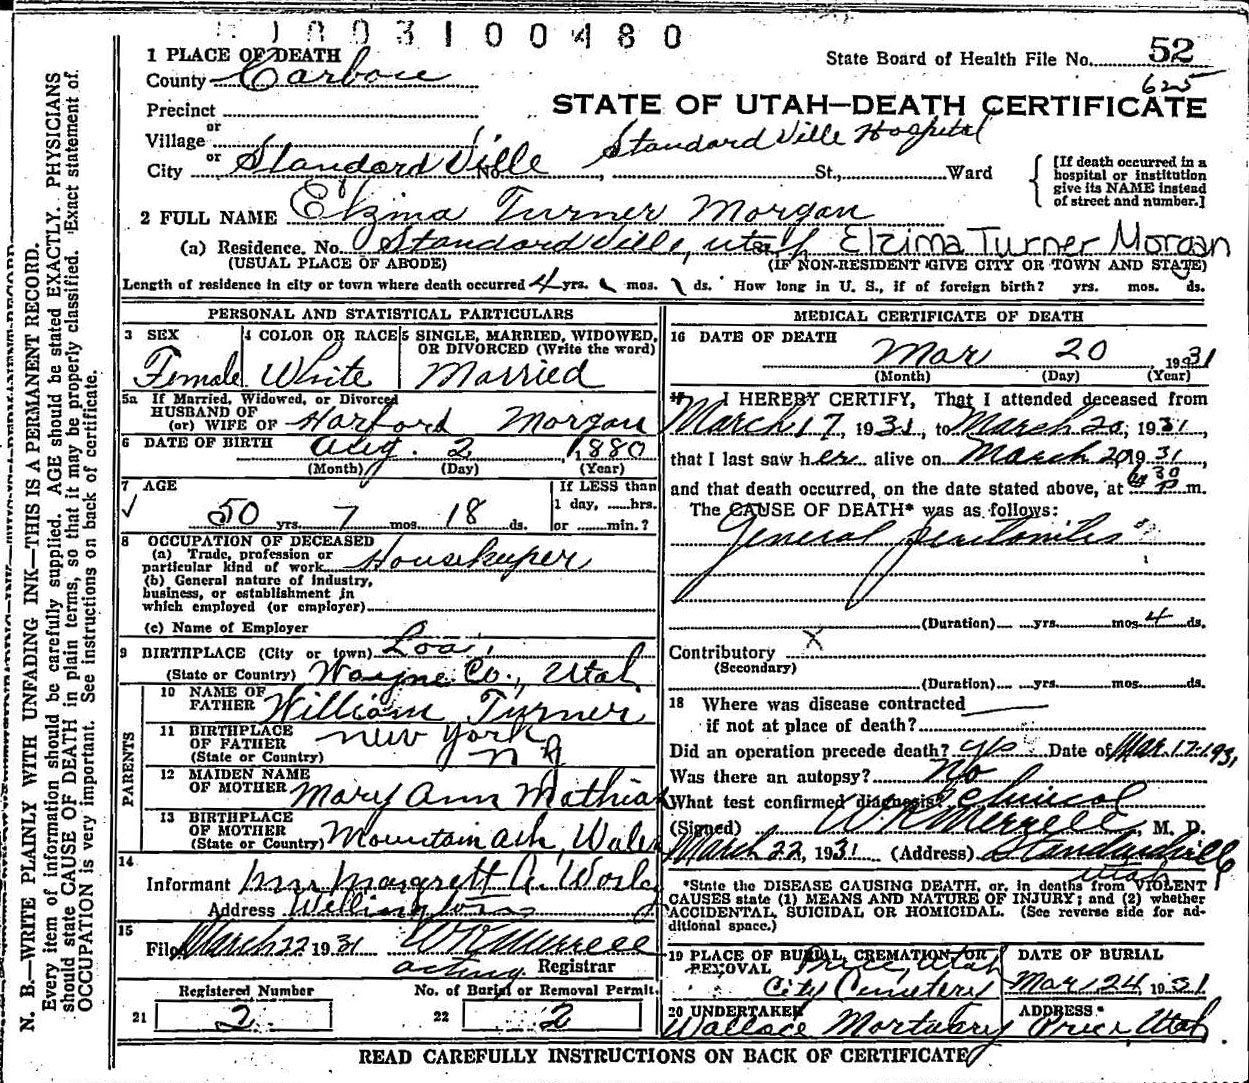 1003100480
1 PLACE OF DEATH
State Board of Health File No. 52
County Carbon
625
STATE OF UTAH—DEATH CERTIFICATE
Precinct
or
Village
Standard Ville Hospital
or
City Standard Ville No. St., Ward
[If death occurred in a
hospital or institution
give its NAME instead
of street and number.]
2 FULL NAME Elzima Turner Morgan
(a) Residence. No. Standard Ville, Utah Elzima Turner Morgan
(USUAL PLACE OF ABODE) (IF NON-RESIDENT GIVE CITY OR TOWN AND STATE)
Length of residence in city or town where death occurred 4 yrs. mos. ds. How long in U. S., if of foreign birth? yrs. mos. ds.
PERSONAL AND STATISTICAL PARTICULARS
3 SEX
Female
4 COLOR OR RACE
White
5 SINGLE, MARRIED, WIDOWED,
OR DIVORCED (Write the word)
Married
5a If Married, Widowed, or Divorced
HUSBAND OF
(or) WIFE OF Harford Morgan
6 DATE OF BIRTH Aug. 2 1880
(Month) (Day) (Year)
7 AGE
50 yrs. 7 mos. 18 ds.
If LESS than
1 day, hrs.
or min.?
8 OCCUPATION OF DECEASED
(a) Trade, profession or
particular kind of work Housekeeper
(b) General nature of industry,
business, or establishment in
which employed (or employer)
(c) Name of Employer
9 BIRTHPLACE (City or town) Loa,
(State or Country) Wayne Co., Utah
PARENTS
10 NAME OF
FATHER William Turner
11 BIRTHPLACE
OF FATHER
(State or Country)
New York
N Y
12 MAIDEN NAME
OF MOTHER Mary Ann Mathias
13 BIRTHPLACE
OF MOTHER
(State or Country) Mountain Ash, Wales
14
Informant Mrs Margrett A.
Address Wellington
15
Filed March 22 1931 W K Merrell
acting Registrar
Registered Number
21 2
No. of Burial or Removal Permit.
22 2
MEDICAL CERTIFICATE OF DEATH
16 DATE OF DEATH
Mar 20 1931
(Month) (Day) (Year)
17 I HEREBY CERTIFY, That I attended deceased from
March 17, 1931, to March 20, 1931,
that I last saw her alive on March 20 1931,
and that death occurred, on the date stated above, at 4 30 P m.
The CAUSE OF DEATH* was as follows:
General peritonitis
(Duration) yrs. mos. 4 ds.
Contributory X
(Secondary)
(Duration) yrs. mos. ds.
18 Where was disease contracted
if not at place of death?
Did an operation precede death? yes Date of Mar. 17-1931
Was there an autopsy? No
What test confirmed diagnosis? Clinical
(Signed) W K Merrell, M. D.
March 22, 1931 (Address) Standardville
Utah
*State the DISEASE CAUSING DEATH, or, in deaths from VIOLENT
CAUSES state (1) MEANS AND NATURE OF INJURY; and (2) whether
ACCIDENTAL, SUICIDAL OR HOMICIDAL. (See reverse side for ad-
ditional space.)
19 PLACE OF BURIAL, CREMATION, OR
REMOVAL Price, Utah
City Cemetery
DATE OF BURIAL
Mar 24, 1931
20 UNDERTAKER
Wallace Mortuary
ADDRESS
Price, Utah
READ CAREFULLY INSTRUCTIONS ON BACK OF CERTIFICATE
N. B.—WRITE PLAINLY WITH UNFADING INK—THIS IS A PERMANENT RECORD.
Every item of information should be carefully supplied. AGE should be stated EXACTLY. PHYSICIANS
should state CAUSE OF DEATH in plain terms, so that it may be properly classified. Exact statement of
OCCUPATION is very important. See instructions on back of certificate.